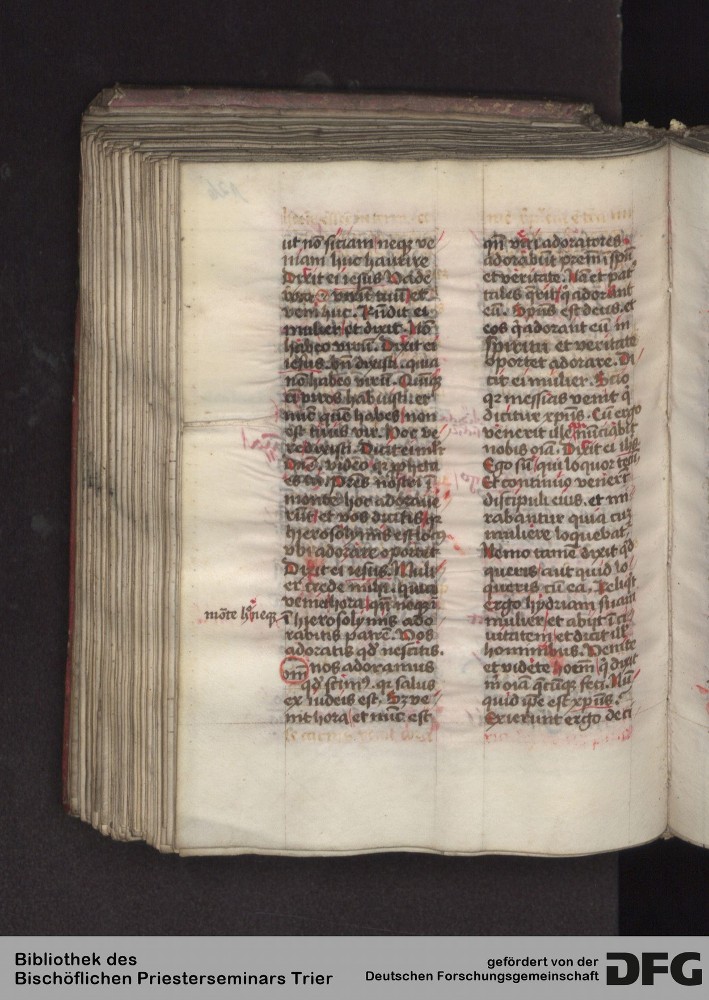 ut nō sitiam neqꝫ ve
niam huc haurire
Dixit ei iesus Vade
voca virū tuū et
veni huc. Rn̄dit ei
mulier et dixit. Nō
habeo virū. Dixit ei
iesus. bn̄ dixisti. quia
nō habeo virū. Quinqꝫ
em̄ viros habuisti et
nūc quē habes non
est tuus vir. Hoc ve
re dixisti. Dicit ei mlr
Dn̄e, video qr ꝓpheta
es tu. Pr̄es nostri ī
monte hoc adorave
rūt et vos dicitis qr
hierosolymis est locꝰ
vbi adorare oportet
Dixit ei iesus. Muli
er crede mihi. quia
veniet hora qn̄ neqꝫ ī
mōte hᵒ neqꝫ
ī hierosolymis ado
rabitis patrē. Vos
adoratis qd̄ nescitis.
nos adoramus
qd̄ scimꝰ. qr salus
ex iudeis est. Sꝫ ve
nit hora et nūc est
qn̄ veri adoratores
adorabūt prem ī spū
et veritate. Nā et pat
tales q̄rit q̄ adorānt
eū. Spūs est deus. et
eos q̄ adorant eū in
spiritu et veritate
oportet adorare. Di
cit ei mulier. Scio
qr messias venit q̄
dicitur xp̄us. Cū ergo
venerit ille nūciabit
nobis oīa. Dixit ei ihs
Ego sū qui loquor tecū
Et continuo venerūt
discipuli eius. et mi
rabantur quia cuꝫ
muliere loquebat
Nemo tamē dixit qd̄
queris aut quid lo
queris cū ea. Reliqt
ergo hydriam suam
mulier et abijt ī ci
uitatem et dicit ill'
hominibus. Venite
et videte hoīem q dixit
m̄ oīa q̄cūqꝫ feci. Nū
quid ipe est xp̄us.
Exierunt ergo de ci
Bibliothek des
Bischöflichen Priesterseminars Trier
gefördert von der
Deutschen Forschungsgemeinschaft
DFG